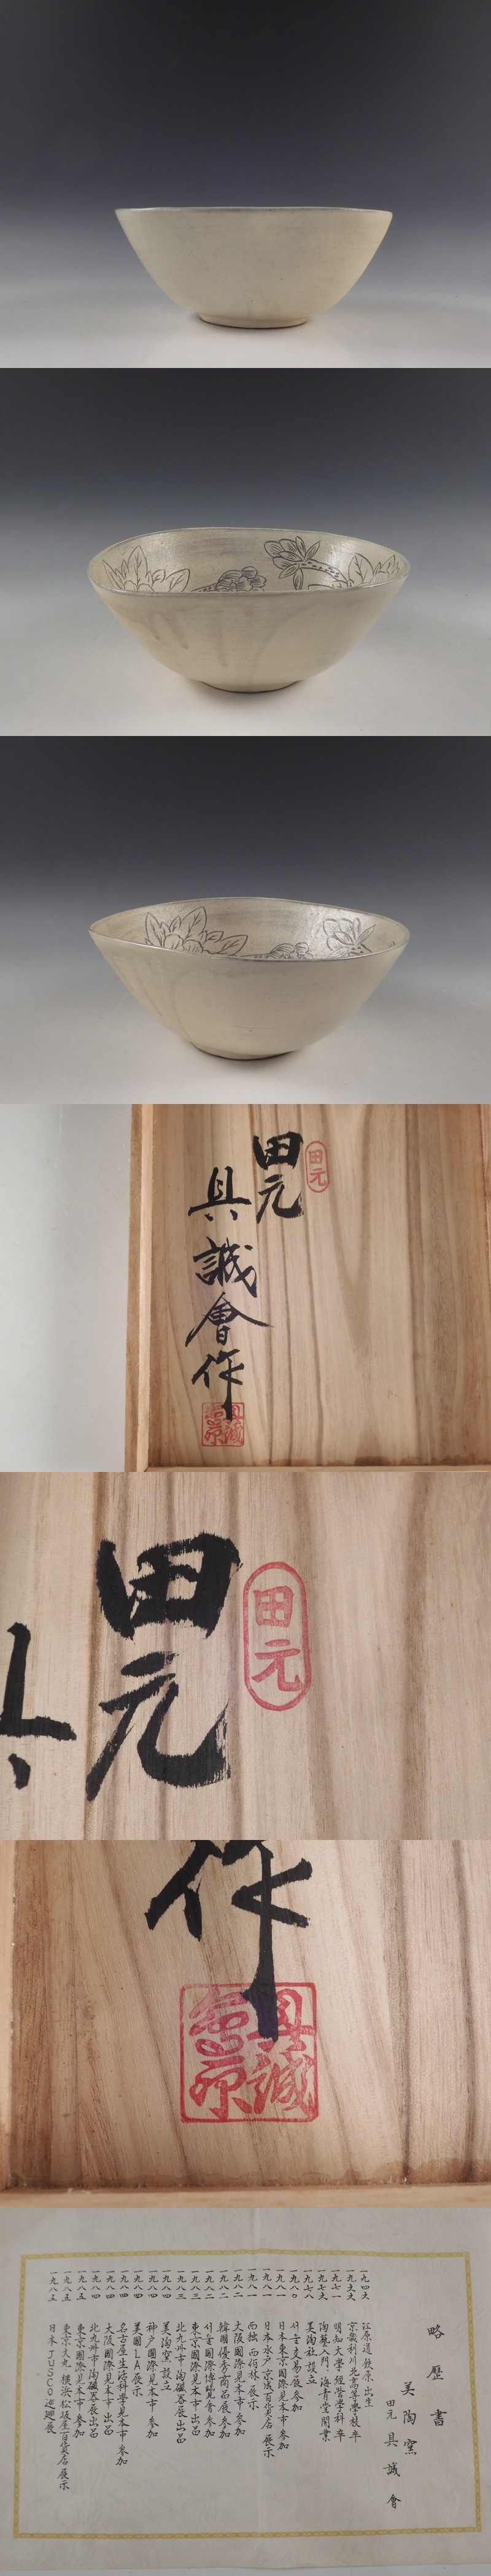 田元
具誠會作
田元
田元
田元
作
具誠會印
略歴書
美陶窯
田元 具誠會
一九四六 江原道 鉄原 出生
京畿利川北高等學校 卒
一九七一 明知大学 経営学科 卒
陶藝入門 海青堂 開業
一九七八 美陶社 設立
一九八〇 서울交易展 参加
一九八一 日本東京國際見本市 参加
一九八一 日本水戸 京成百貨店 展示
一九八一 西独 西伯林 展示
一九八二 大阪國際見本市 参加
一九八二 韓明優秀商品展 参加
一九八二 서울國際博覧會 参加
一九八三 東京國際見本市 出品
一九八三 北九州市 陶磁器展 出品
一九八四 美陶窯 設立
一九八四 神戸國際見本市 参加
一九八四 美國 LA 展示
一九八四 名古屋生活科學見本市 参加
一九八四 大阪國際見本市 出品
一九八四 北九州市 陶磁器展 出品
一九八五 東京國際見本市 参加
一九八五 東京大丸 横浜松坂屋百貨店 展示
一九八五 日本 JUSCO 巡廻展